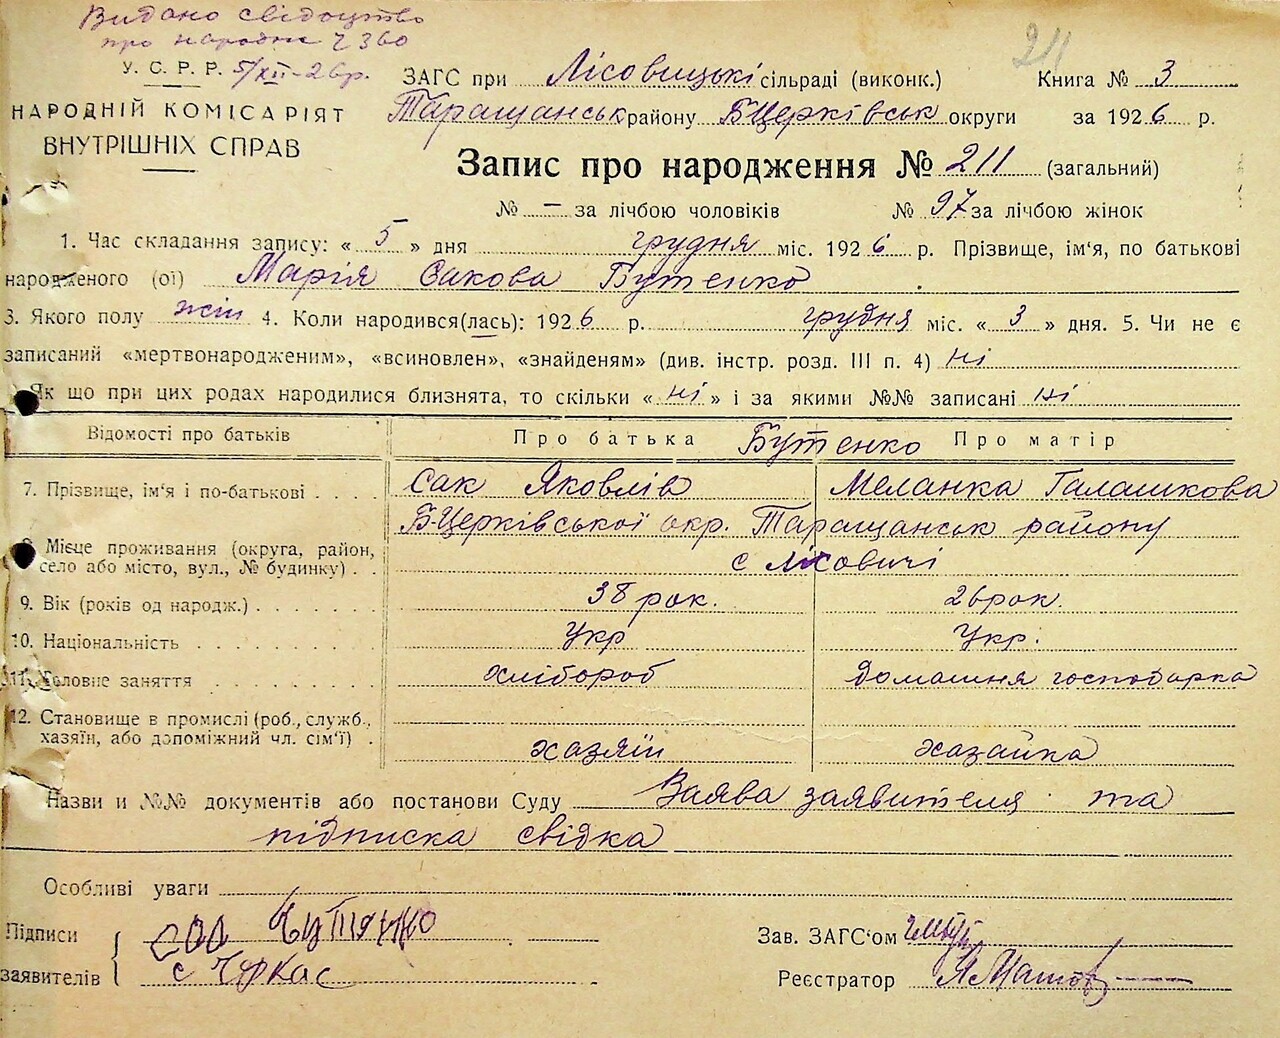 Видано свідоцтво
про народж Ч 360
5/XII-26р.
211
У. С. Р. Р.
НАРОДНІЙ КОМІСАРІЯТ
ВНУТРІШНІХ СПРАВ
ЗАГС при Лісовицькі сільраді (виконк.) Книга № 3
Таращанськ району Б-Церківськ округи за 1926 р.
Запис про народження № 211 (загальний)
№ — за лічбою чоловіків № 97 за лічбою жінок
1. Час складання запису: « 5 » дня грудня міс. 1926 р. Прізвище, ім'я, по батькові
народженого (ої) Марія Сакова Бутенко
3. Якого полу жін 4. Коли народився(лась): 1926 р. грудня міс. « 3 » дня. 5. Чи не є
записаний «мертвонародженим», «всиновлен», «знайденям» (див. інстр. розд. III п. 4) ні
Як що при цих родах народилися близнята, то скільки « ні » і за якими №№ записані ні
Відомості про батьків Про батька Бутенко Про матір
7. Прізвище, ім'я і по-батькові . . . . Сак Яковлів Меланка Галашкова
Б-Церківської окр. Таращанськ району
8. Місце проживання (округа, район,
село або місто, вул., № будинку) . . с Лісовичі
9. Вік (років од народж.) . . . . . . . 38 рок. 26 рок.
10. Національність . . . . . . . . . Укр Укр.
11. Головне заняття . . . . . . . . хлібороб домашня господарка
12. Становище в промислі (роб., служб.,
хазяїн, або допоміжний чл. сім'ї) . хазяїн хазайка
Назви и №№ документів або постанови Суду Заява заявителя та
підписка свідка
Особливі уваги
Підписи Бутянко
заявителів с Чуркас
Зав. ЗАГС'ом
Реєстратор